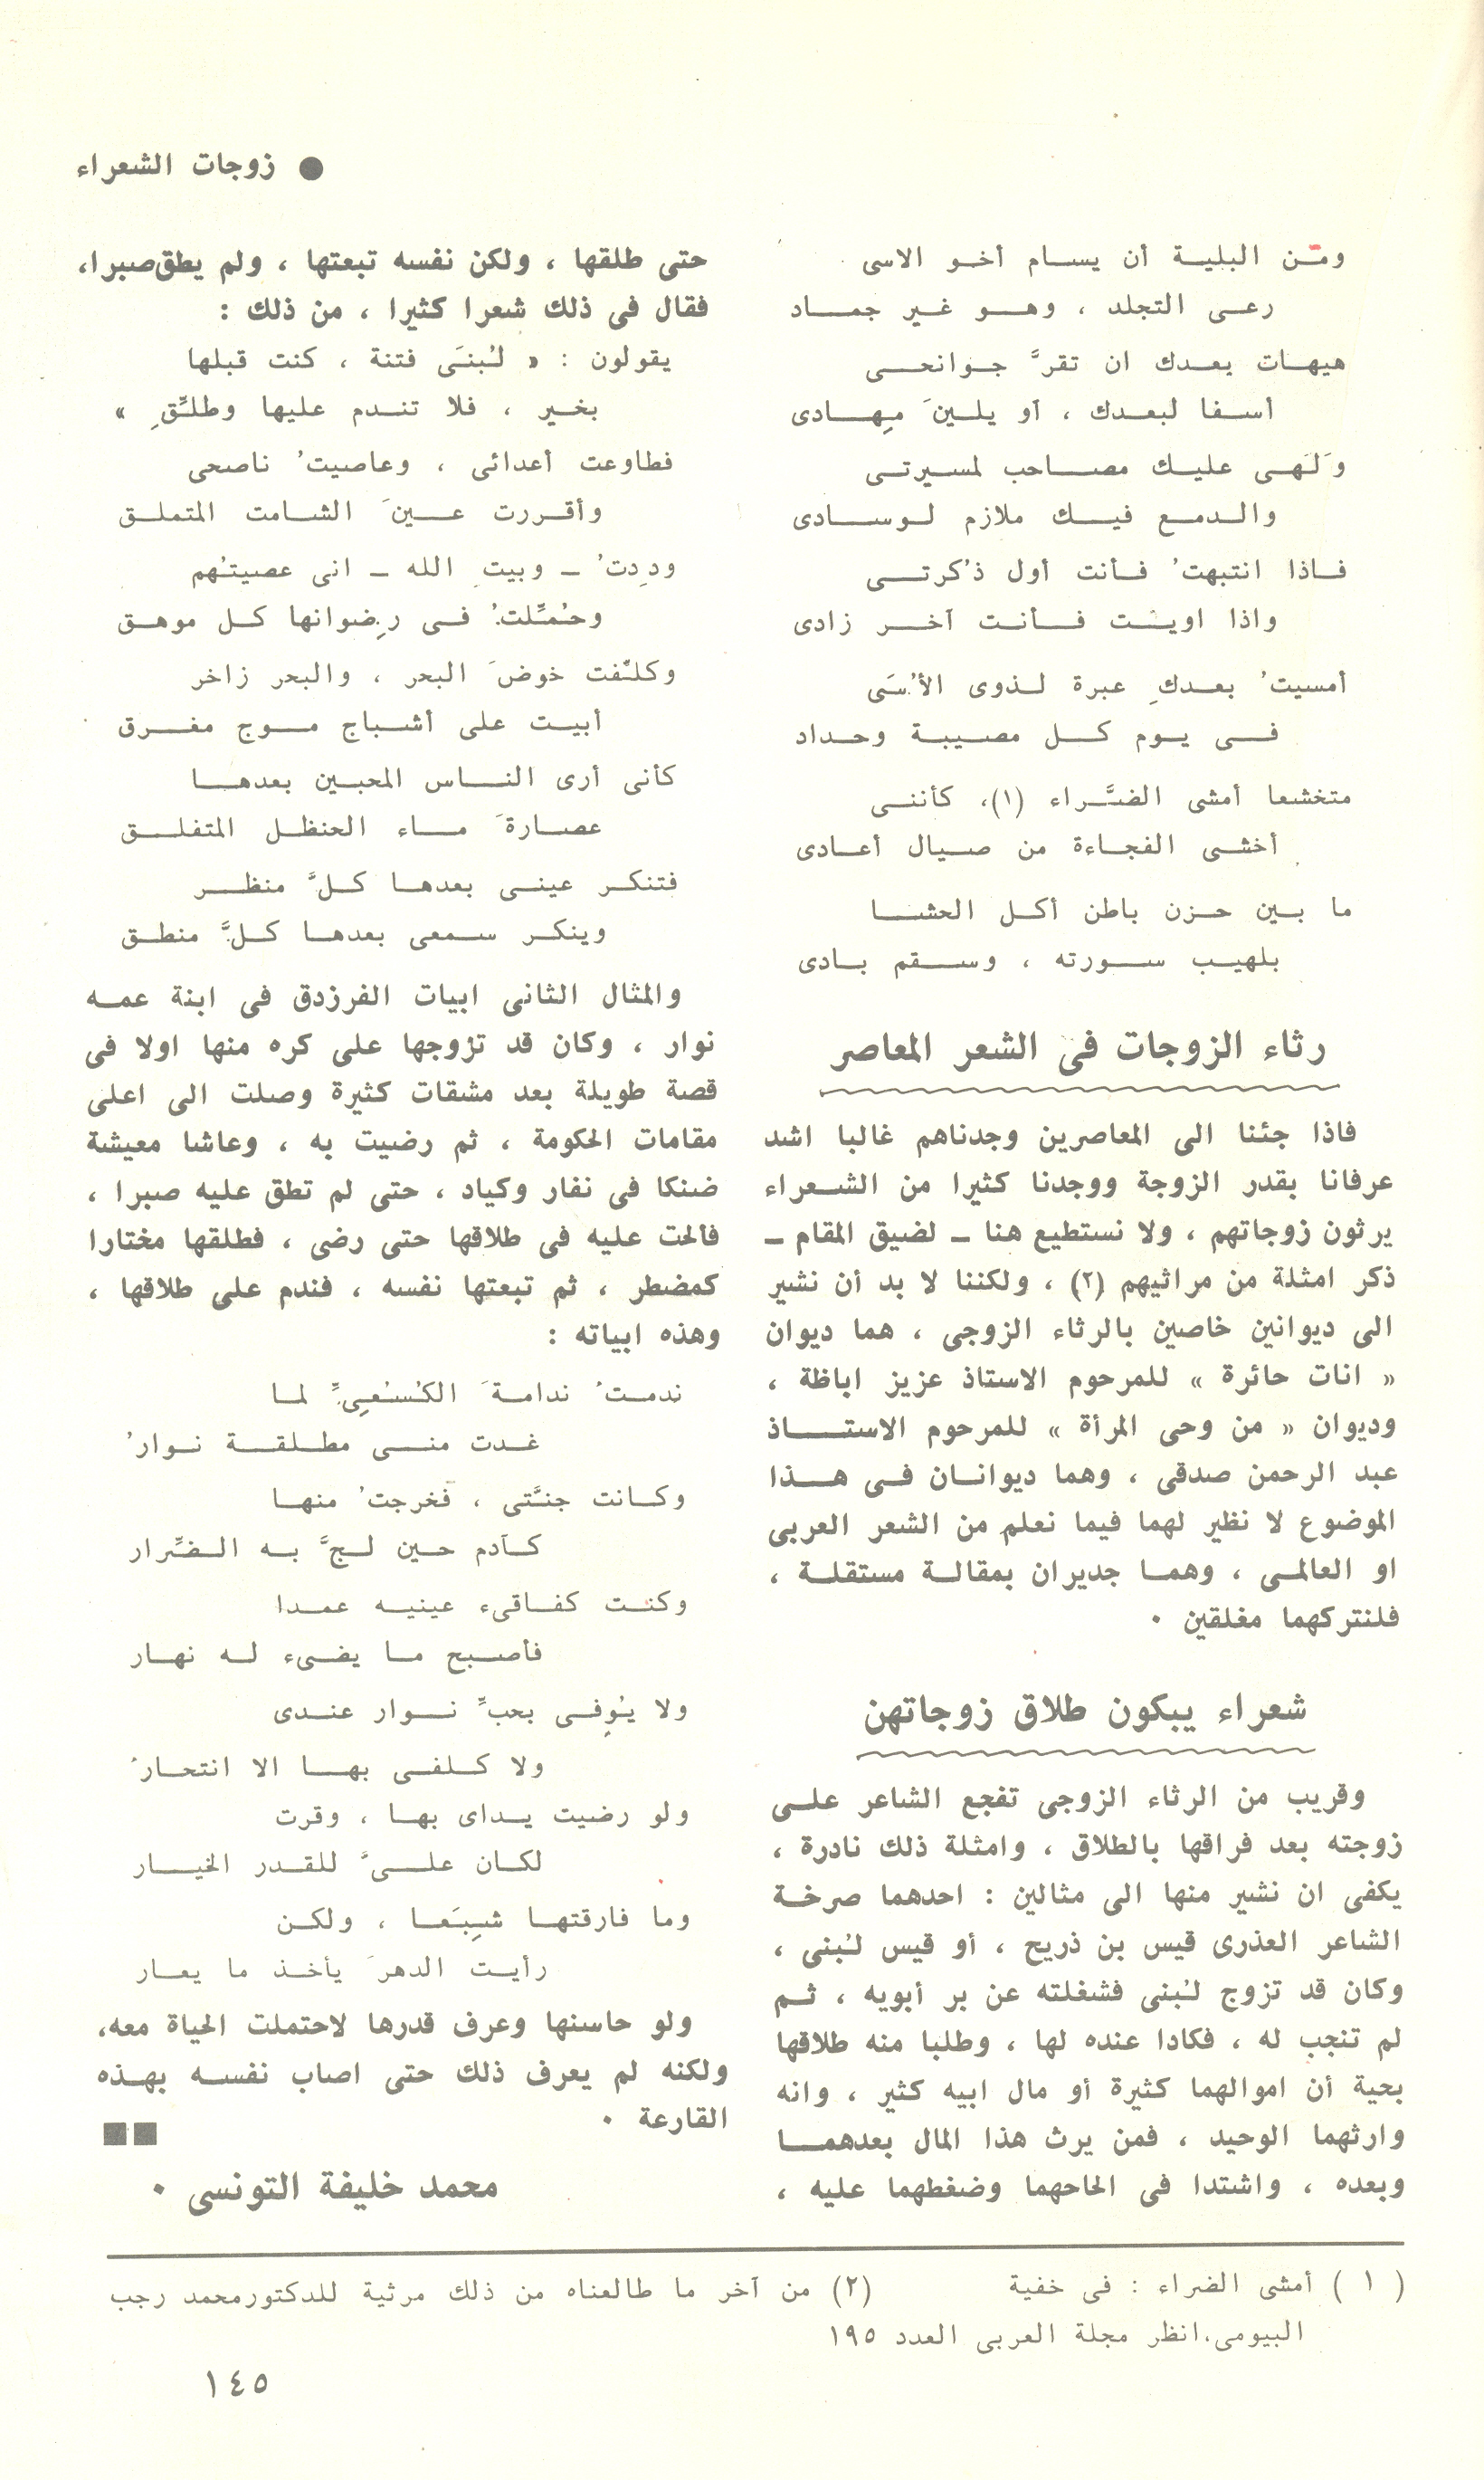 ● زوجات الشعراء
ومن البلية أن يسام أخو الاسى
رعى التجلد ، وهو غير جماد
هيهات بعدك ان تقرَّ جوانحى
أسفا لبعدك ، أو يلينَ مِهادى
وَلَهى عليك مصاحب لمسيرتى
والدمع فيك ملازم لوسادى
فاذا انتبهتُ فأنت أول ذُكرتى
واذا اويت فأنت آخر زادى
أمسيتُ بعدكِ عبرة لذوى الأُسَى
فى يوم كل مصيبة وحداد
متخشعا أمشى الضَّراء (١)، كأننى
أخشى الفجاءة من صيال أعادى
ما بين حزن باطن أكل الحشا
بلهيب سورته ، وسقم بادى
رثاء الزوجات فى الشعر المعاصر
فاذا جئنا الى المعاصرين وجدناهم غالبا اشد
عرفانا بقدر الزوجة ووجدنا كثيرا من الشعراء
يرثون زوجاتهم ، ولا نستطيع هنا – لضيق المقام –
ذكر امثلة من مراثيهم (٢) ، ولكننا لا بد أن نشير
الى ديوانين خاصين بالرثاء الزوجى ، هما ديوان
« انات حائرة » للمرحوم الاستاذ عزيز اباظة ،
وديوان « من وحى المرأة » للمرحوم الاستاذ
عبد الرحمن صدقى ، وهما ديوانان فى هذا
الموضوع لا نظير لهما فيما نعلم من الشعر العربى
او العالمى ، وهما جديران بمقالة مستقلة ،
فلنتركهما مغلقين ٠
شعراء يبكون طلاق زوجاتهن
وقريب من الرثاء الزوجى تفجع الشاعر على
زوجته بعد فراقها بالطلاق ، وامثلة ذلك نادرة ،
يكفى ان نشير منها الى مثالين : احدهما صرخة
الشاعر العذرى قيس بن ذريح ، أو قيس لُبنى ،
وكان قد تزوج لُبنى فشغلته عن بر أبويه ، ثم
لم تنجب له ، فكادا عنده لها ، وطلبا منه طلاقها
بحية أن اموالهما كثيرة أو مال ابيه كثير ، وانه
وارثهما الوحيد ، فمن يرث هذا المال بعدهما
وبعده ، واشتدا فى الحاحهما وضغطهما عليه ،
حتى طلقها ، ولكن نفسه تبعتها ، ولم يطق صبرا،
فقال فى ذلك شعرا كثيرا ، من ذلك :
يقولون : « لُبنَى فتنة ، كنت قبلها
بخير ، فلا تندم عليها وطلِّقِ »
فطاوعت أعدائى ، وعاصيتُ ناصحى
وأقررت عينَ الشامت المتملق
ودِدتُ – وبيتِ الله – انى عصيتُهم
وحُمِّلتُ فى رِضوانها كل موهق
وكلِّفت خوضَ البحر ، والبحر زاخر
أبيت على أشباج موج مفرق
كأنى أرى الناس المحبين بعدها
عصارةَ ماء الحنظل المتفلق
فتنكر عينى بعدها كلَّ منظر
وينكر سمعى بعدها كلَّ منطق
والمثال الثانى ابيات الفرزدق فى ابنة عمه
نوار ، وكان قد تزوجها على كره منها اولا فى
قصة طويلة بعد مشقات كثيرة وصلت الى اعلى
مقامات الحكومة ، ثم رضيت به ، وعاشا معيشة
ضنكا فى نفار وكياد ، حتى لم تطق عليه صبرا ،
فألحت عليه فى طلاقها حتى رضى ، فطلقها مختارا
كمضطر ، ثم تبعتها نفسه ، فندم على طلاقها ،
وهذه ابياته :
ندمتُ ندامةَ الكُسُعِىِّ لما
غدت منى مطلقة نوارُ
وكانت جنَّتى ، فخرجتُ منها
كآدم حين لجَّ به الضِّرار
وكنت كفاقىء عينيه عمدا
فأصبح ما يضىء له نهار
ولا يُوفِى بحبِّ نوار عندى
ولا كلفى بها الا انتحارُ
ولو رضيت يداى بها ، وقرت
لكان علىَّ للقدر الخيار
وما فارقتها شِبَعا ، ولكن
رأيت الدهرَ يأخذ ما يعار
ولو حاسنها وعرف قدرها لاحتملت الحياة معه،
ولكنه لم يعرف ذلك حتى اصاب نفسه بهذه
القارعة ٠ ■■
محمد خليفة التونسى ٠
( ١ ) أمشى الضراء : فى خفية (٢) من آخر ما طالعناه من ذلك مرثية للدكتور محمد رجب
البيومى،انظر مجلة العربى العدد ١٩٥
١٤٥